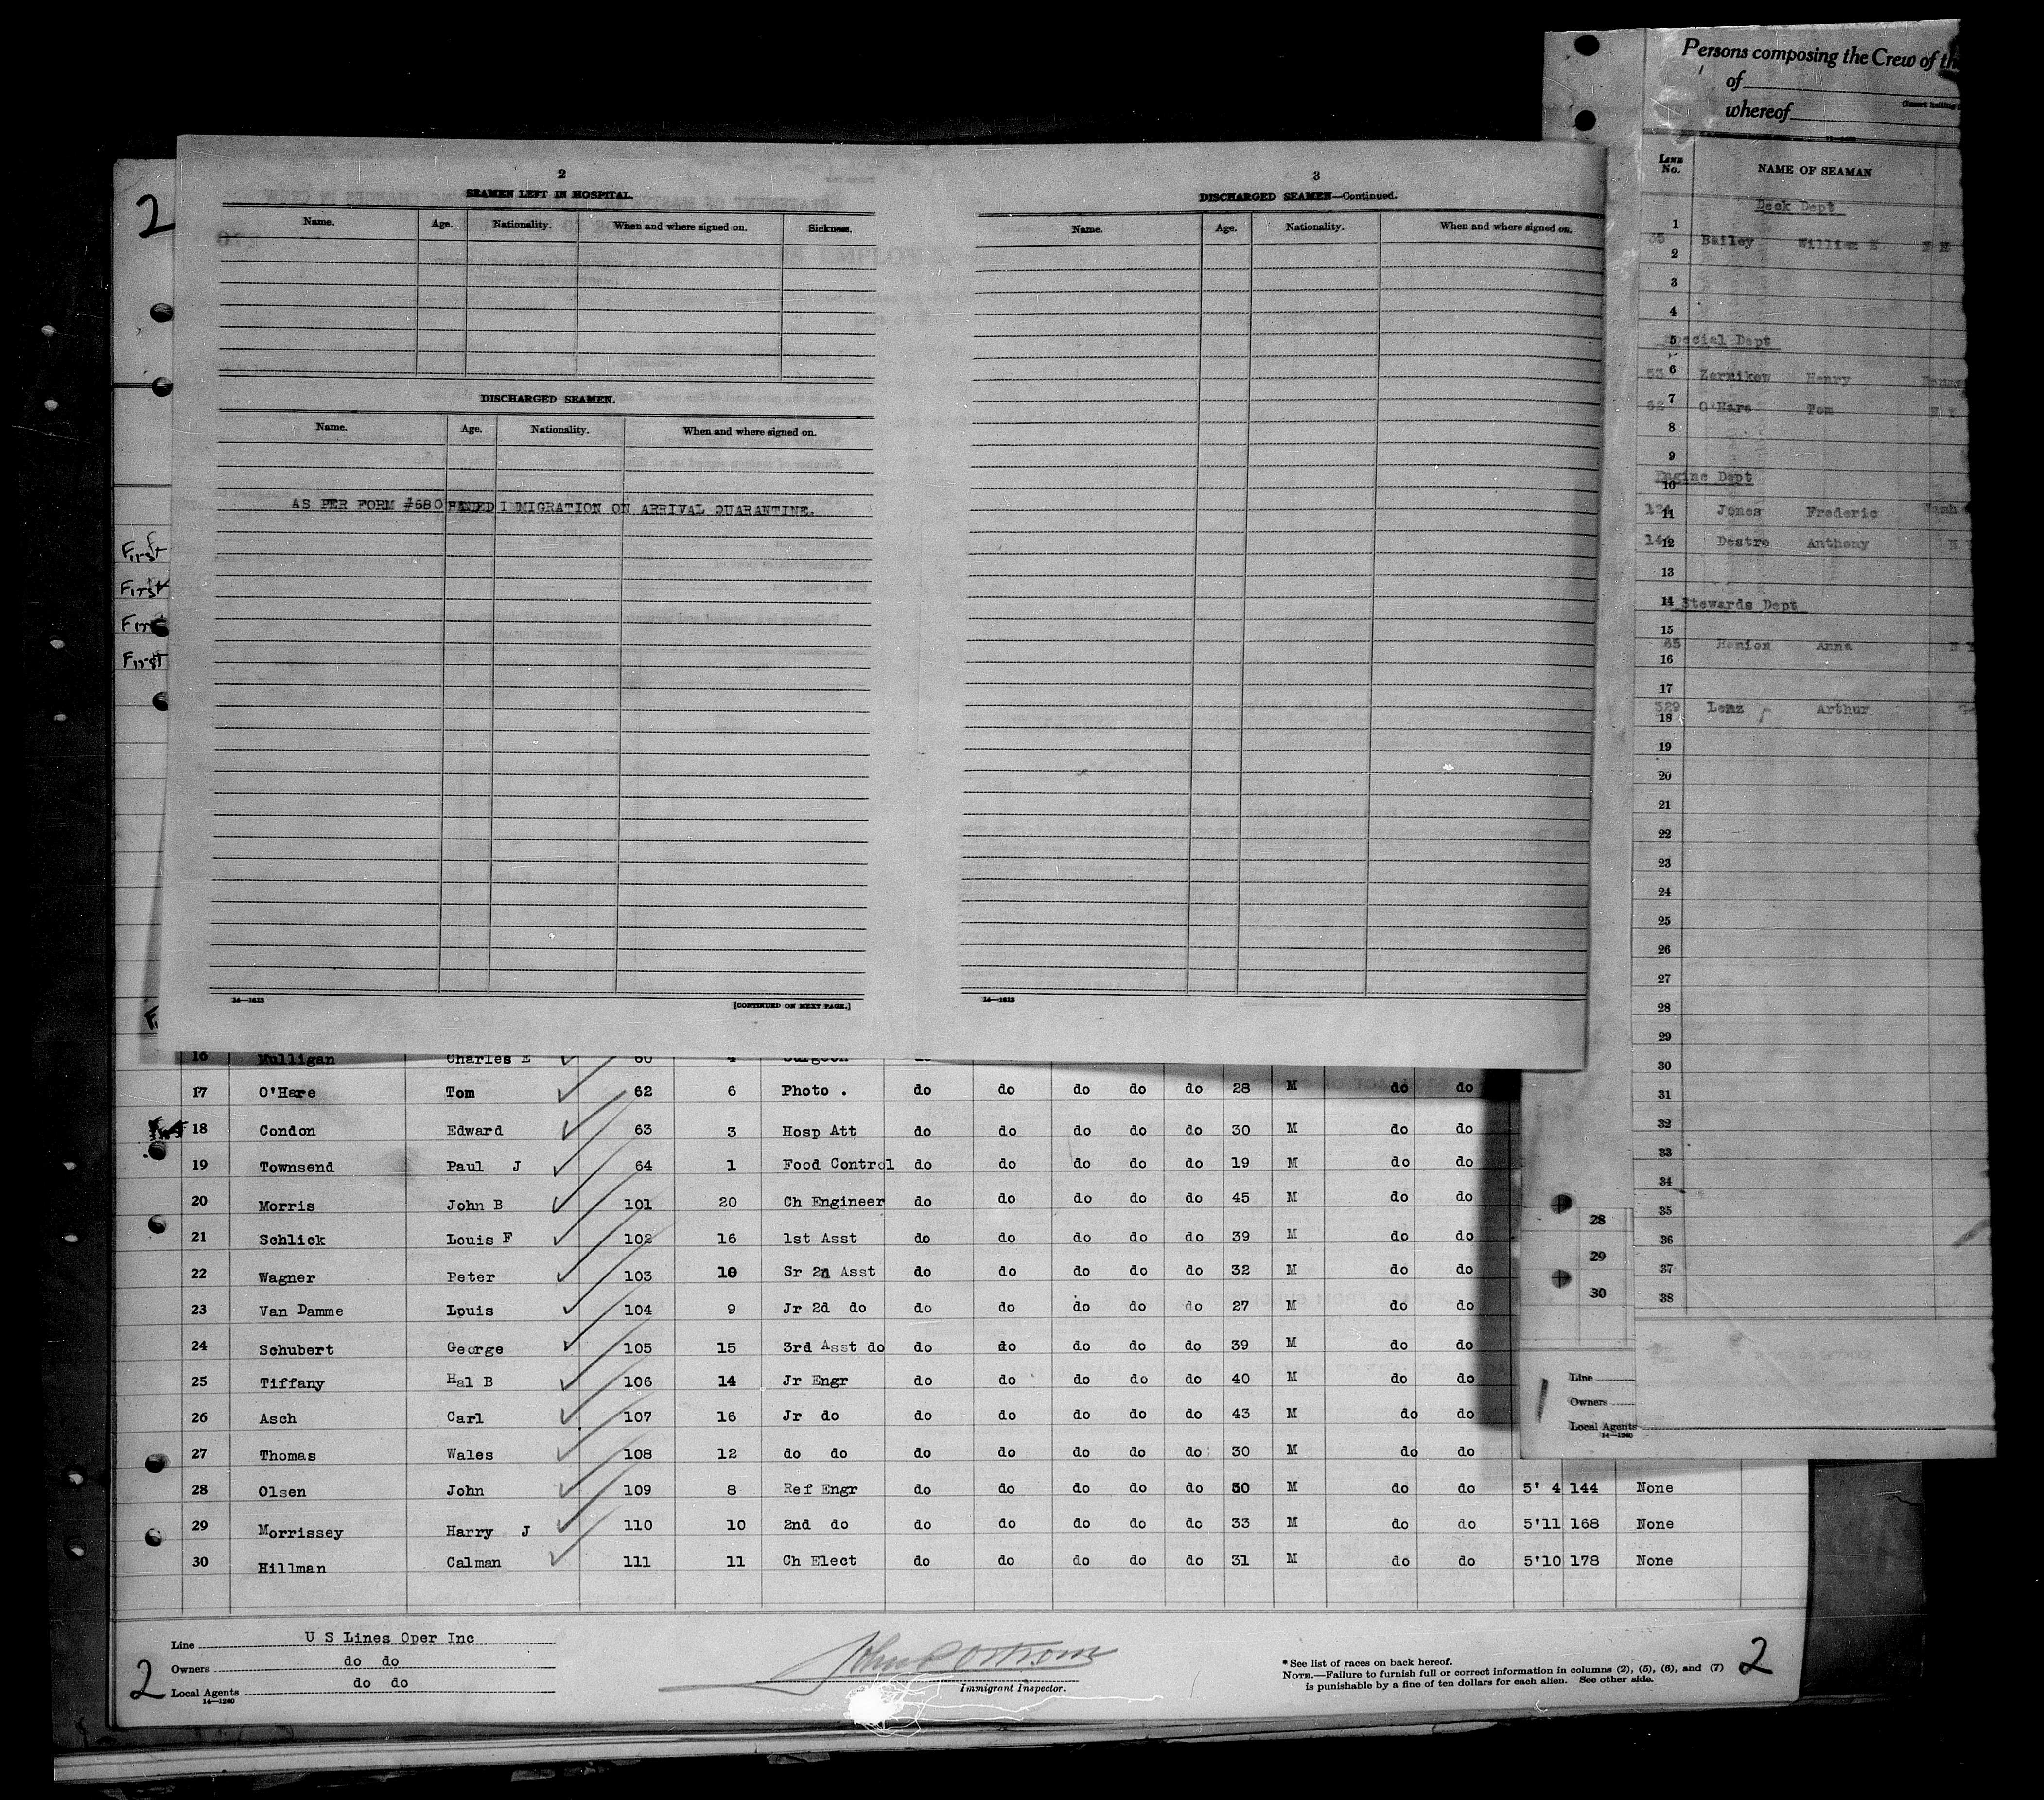 2
2
SEAMEN LEFT IN HOSPITAL.
Name. Age. Nationality. When and where signed on. Sickness.
DISCHARGED SEAMEN.
Name. Age. Nationality. When and where signed on.
AS PER FORM #680 HANDED IMMIGRATION ON ARRIVAL QUARANTINE.
14—1613
[CONTINUED ON NEXT PAGE.]
3
DISCHARGED SEAMEN—Continued.
Name. Age. Nationality. When and where signed on.
14—1613
First
First
First
First
16 Mulligan Charles E 60 4 Surgeon do
17 O'Hare Tom 62 6 Photo . do do do do do 28 M do do
18 Condon Edward 63 3 Hosp Att do do do do do 30 M do do
19 Townsend Paul J 64 1 Food Control do do do do do 19 M do do
20 Morris John B 101 20 Ch Engineer do do do do do 45 M do do
21 Schlick Louis F 102 16 1st Asst do do do do do 39 M do do
22 Wagner Peter 103 10 Sr 2n Asst do do do do do 32 M do do
23 Van Damme Louis 104 9 Jr 2d do do do do do do 27 M do do
24 Schubert George 105 15 3rd Asst do do do do do do 39 M do do
25 Tiffany Hal B 106 14 Jr Engr do do do do do 40 M do do
26 Asch Carl 107 16 Jr do do do do do do 43 M do do
27 Thomas Wales 108 12 do do do do do do do 30 M do do
28 Olsen John 109 8 Ref Engr do do do do do 50 M do do 5' 4 144 None
29 Morrissey Harry J 110 10 2nd do do do do do do 33 M do do 5'11 168 None
30 Hillman Calman 111 11 Ch Elect do do do do do 31 M do do 5'10 178 None
Line U S Lines Oper Inc
Owners do do
Local Agents do do
14—1240
2
John P Ostrom
Immigrant Inspector.
* See list of races on back hereof.
NOTE.—Failure to furnish full or correct information in columns (2), (5), (6), and (7)
is punishable by a fine of ten dollars for each alien. See other side.
2
Persons composing the Crew of the
of
whereof
LINE No. NAME OF SEAMAN
Deck Dept
1
35 Bailey William E N H
2
3
4
5 Special Dept
6
53 Zernikow Henry
7
62 O'Hare Tom N Y
8
9
Engine Dept
10
11
124 Jones Frederic Wash
12
144 Destro Anthony N Y
13
14 Stewards Dept
15
65 Henion Anna N Y
16
17
329 Lenz Arthur Ge
18
19
20
21
22
23
24
25
26
27
28
29
30
31
32
33
34
35
36
37
38
28
29
30
Line
Owners
Local Agents
14—1240